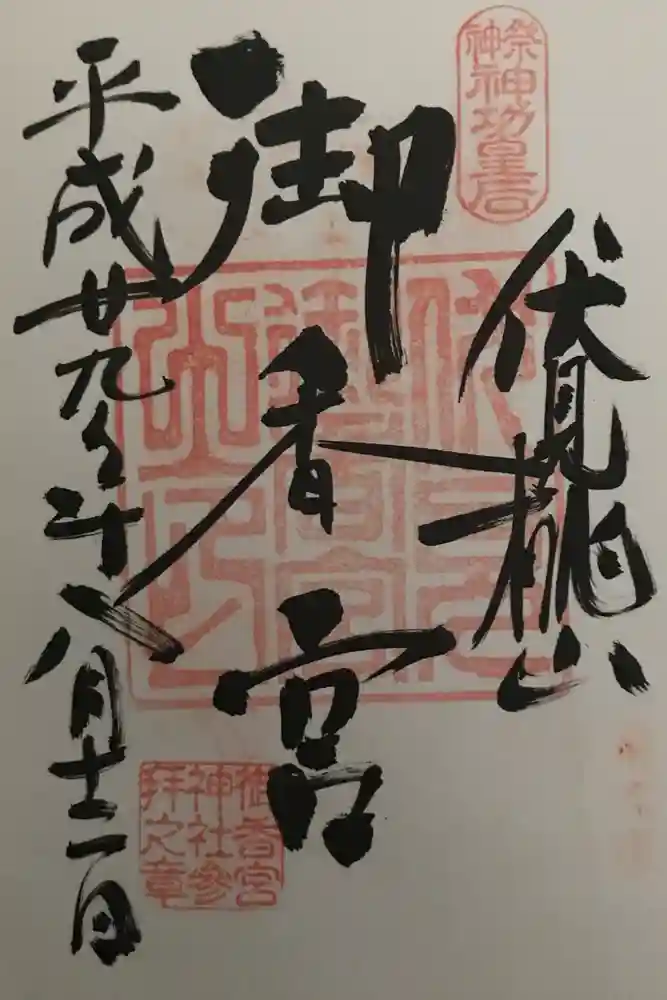 祭神
神功皇后
伏見桃山
御香宮
平成廿九年八月十二日
御香宮
神社參
拜之章